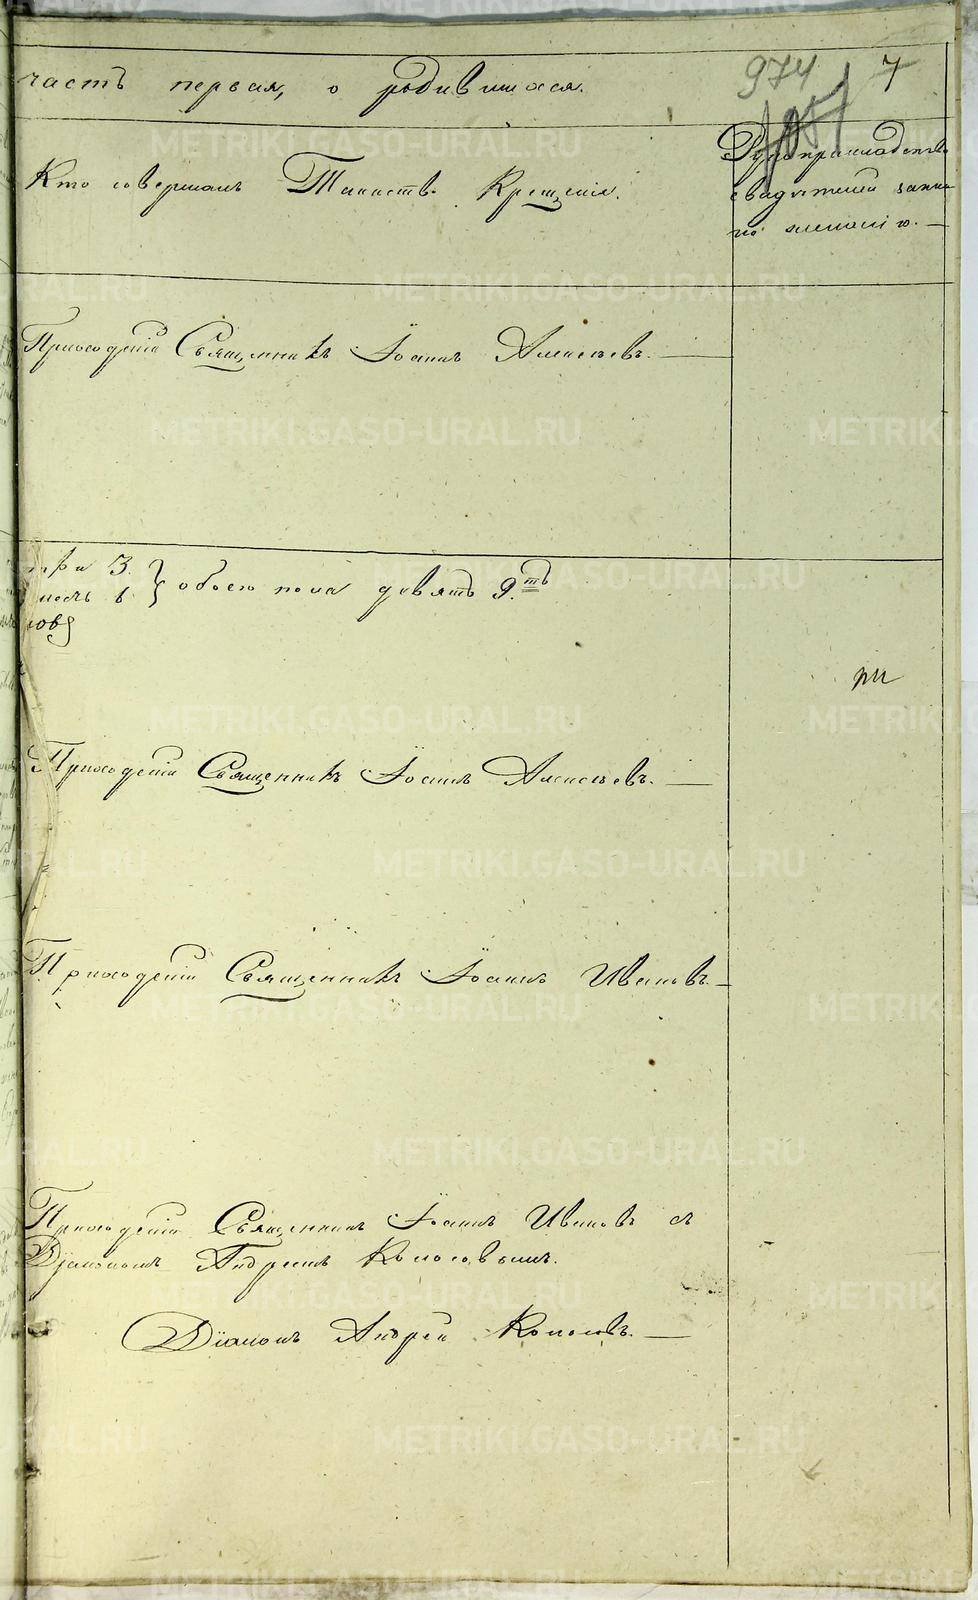 часть первая, о родившихся.
974 7
Кто совершалъ Таинство Крещенія.
Рукоприкладство
свидѣтелей запи
по желанію. —
Приходскій Священникъ Іоаннъ Алексѣевъ. —
три 3.
обоего пола девять 9.ть
Приходскій Священникъ Іоаннъ Алексѣевъ. —
Приходскій Священникъ Іоаннъ Ивановъ. —
Приходскій Священникъ Іоаннъ Ивановъ съ
Діакономъ Андреемъ Колосовымъ.
Діаконъ Андрей Колосовъ. —
METRIKI.GASO-URAL.RU